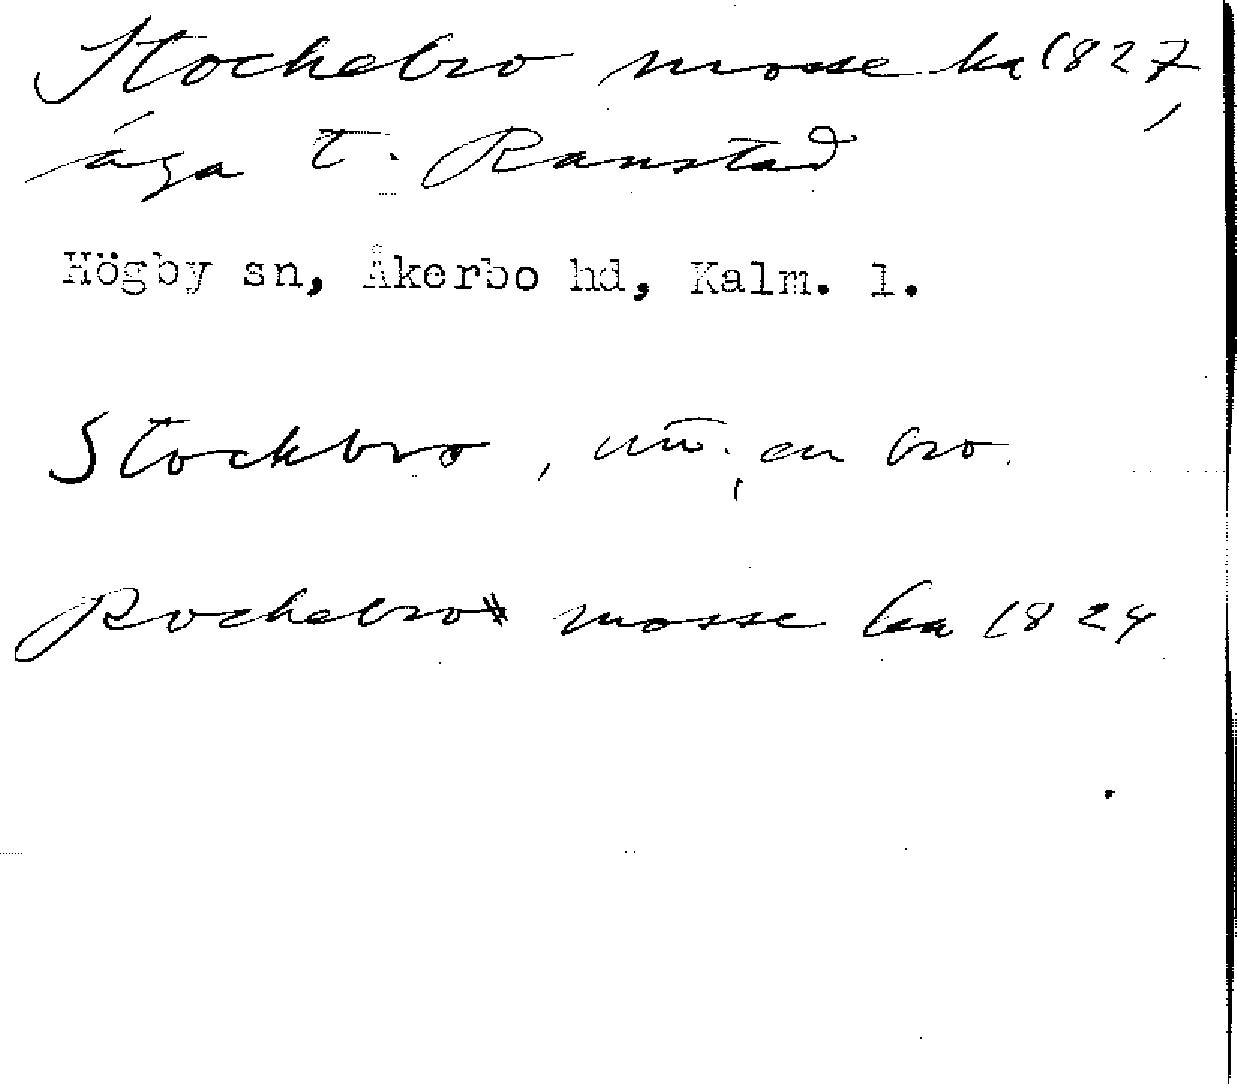 Stochebro mosse ka 1827,
äga t. Ranstad
Högby sn, Åkerbo hd, Kalm. l.
Stockbro, nu; en bro.
Rochebro mosse ka 1824